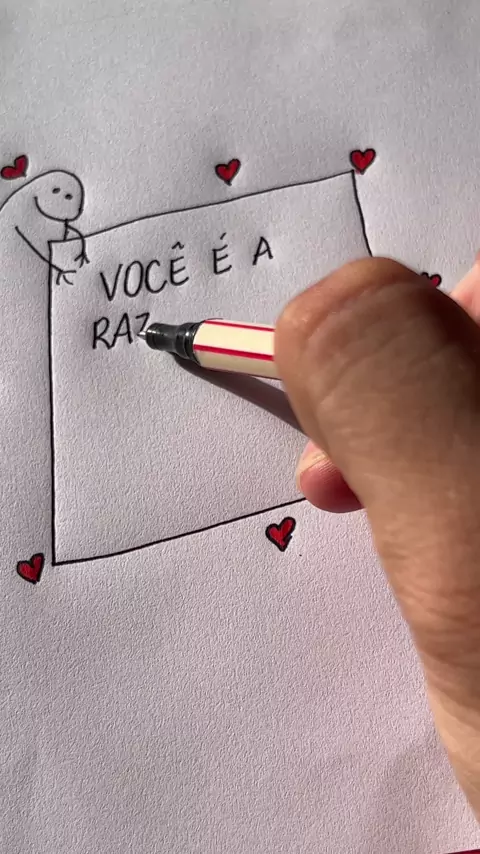 VOCÊ É A
RAZ